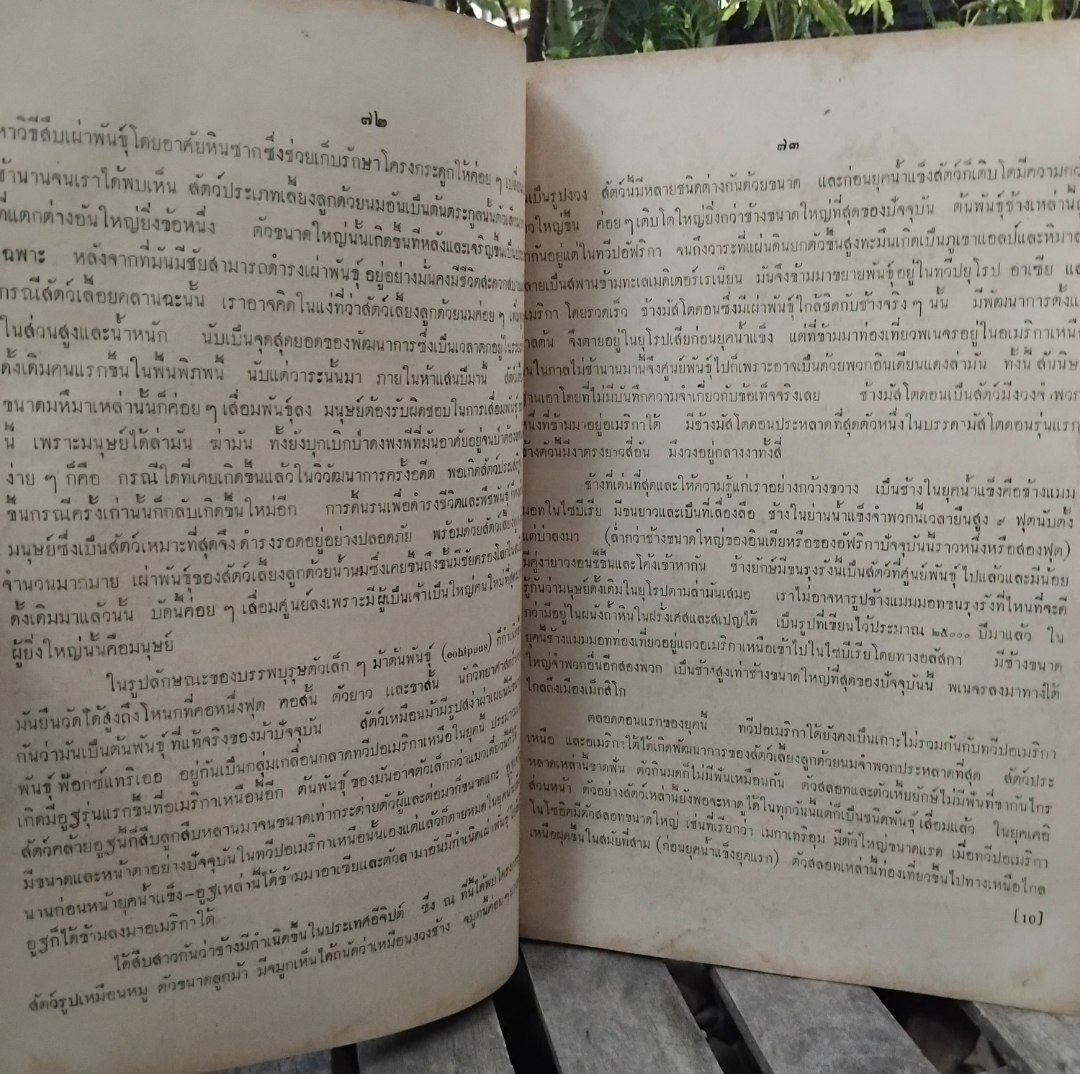 ๗๒
หาวิธีสืบเผ่าพันธุ์โดยอาศัยหินซากซึ่งช่วยเก็บรักษาโครงกระดูกให้ค่อย ๆ
ช้านานจนเราได้พบเห็น สัตว์ประเภทเลี้ยงลูกด้วยนมอันเป็นต้นตระกูลนั้นตัวเล็ก
ที่แตกต่างอันใหญ่ยิ่งข้อหนึ่ง ตัวขนาดใหญ่นั้นเกิดขึ้นที่หลังและเจริญขึ้นเป็น
ฉพาะ หลังจากที่มันมีชัยสามารถดำรงเผ่าพันธุ์อยู่อย่างมั่นคงมีชีวิตสะดวกสบาย
กรณีสัตว์เลื้อยคลานฉะนั้น เราอาจคิดในแง่ที่ว่าสัตว์เลี้ยงลูกด้วยนมค่อย ๆ
ในส่วนสูงและน้ำหนัก นับเป็นจุดสุดยอดของพัฒนาการซึ่งเป็นเวลาตกอยู่ใน
ดั้งเดิมคนแรกขึ้นในพื้นพิภพนี้ นับแต่วาระนั้นมา ภายในห้าแสนปีมานี้ สัตว์
ขนาดมหึมาเหล่านั้นก็ค่อย ๆ เสื่อมพันธุ์ลง มนุษย์ต้องรับผิดชอบในการเสื่อมพันธุ์
นี้ เพราะมนุษย์ได้ล่ามัน ฆ่ามัน ทั้งยังบุกเบิกป่าดงพงพีที่มันอาศัยอยู่จนป่า
ง่าย ๆ ก็คือ กรณีใดที่เคยเกิดขึ้นแล้วในวิวัฒนาการครั้งอดีต พอเกิดสัตว์ประเสริฐ
ขึ้นกรณีครั้งเก่านั้นก็กลับเกิดขึ้นใหม่อีก การดิ้นรนเพื่อดำรงชีวิตและพืชพันธุ์
มนุษย์ซึ่งเป็นสัตว์เหมาะที่สุดจึงดำรงรอดอยู่อย่างปลอดภัย พร้อมด้วยสัตว์เลี้ยง
จำนวนมากมาย เผ่าพันธุ์ของสัตว์เลี้ยงลูกด้วยน้ำนมซึ่งเคยขึ้นถึงชั้นมีชัยครองโลก
ดั้งเดิมมาแล้วนั้น บัดนี้ค่อย ๆ เสื่อมศูนย์ลงเพราะมีผู้เป็นเจ้าเป็นใหญ่คนใหม่
ผู้ยิ่งใหญ่นั้นคือมนุษย์
ในรูปลักษณะของบรรพบุรุษตัวเล็ก ๆ ม้าต้นพันธุ์ (eohippus) ก็กำเนิด
มันยืนวัดได้สูงถึงโหนกที่คอหนึ่งฟุต คอสั้น ตัวยาว และขาสั้น นักวิทยาศาสตร์
กันว่ามันเป็นต้นพันธุ์ที่แท้จริงของม้าปัจจุบัน สัตว์เหมือนม้ามีรูปสง่าผ่าเผยนี้
พันธุ์ฟ๊อกซ์แทริเออ อยู่กันเป็นกลุ่มเกลื่อนกลาดทวีปอเมริกาเหนือในยุคนี้
เกิดมีอูฐรุ่นแรกขึ้นที่อเมริกาเหนือนี้อีก ต้นพันธุ์ของมันอาจตัวเล็กกว่าแมว
สัตว์คล้ายอูฐนี้ก็สืบลูกสืบหลานมาจนขนาดเท่ากระต่ายตัวผู้และต่อมาก็ขนาดแกะ
มีขนาดและหน้าตาอย่างปัจจุบันในทวีปอเมริกาเหนือนั้นเองแต่แล้วก็ตายหมดในยุค
นานก่อนหน้ายุคน้ำแข็ง–อูฐเหล่านี้ได้ข้ามมาอาเซียและตัวลามาอันมีกำเนิดเผ่าพันธุ์
อูฐก็ได้ข้ามลงมาอเมริกาใต้
ได้สืบสาวกันว่าช้างมีกำเนิดขึ้นในประเทศอียิปต์ ซึ่ง ณ ที่นี้ได้พบโครง
สัตว์รูปเหมือนหมู ตัวขนาดลูกม้า มีจมูกเห็นได้ถนัดว่าเหมือนงวงช้าง จมูกนี้ค่อย ๆ
๗๓
เป็นรูปงวง สัตว์นี้มีหลายชนิดต่างกันด้วยขนาด และก่อนยุคน้ำแข็งสัตว์ก็เติบโตมีความ
ใหญ่ขึ้น ค่อย ๆ เติบโตใหญ่ยิ่งกว่าช้างขนาดใหญ่ที่สุดของปัจจุบัน ต้นพันธุ์ช้างเหล่านี้
กันอยู่แต่ในทวีปอัฟริกา จนถึงวาระที่แผ่นดินยกตัวขึ้นสูงทะมึนเกิดเป็นภูเขาแอลป์และหิมา
ลายเป็นสพานข้ามทะเลเมดิเตอร์เรเนียน มันจึงข้ามมาขยายพันธุ์อยู่ในทวีปยุโรป อาเซีย และ
เมริกา โดยรวดเร็ว ช้างมัสโตดอนซึ่งมีเผ่าพันธุ์ใกล้ชิดกับช้างจริง ๆ นั้น มีพัฒนาการตั้งแต่
จึงตายอยู่ในยุโรปเสียก่อนยุคน้ำแข็ง แต่ที่ข้ามมาท่องเที่ยวพเนจรอยู่ในอเมริกาเหนือ
ในกาลไม่ช้านานมานี้จึงศูนย์พันธุ์ไปก็เพราะอาจเป็นด้วยพวกอินเดียนแดงล่ามัน ทั้งนี้ สันนิษ
ฐานเอาโดยที่ไม่มีบันทึกความจำเกี่ยวกับข้อเท็จจริงเลย ช้างมัสโตดอนเป็นสัตว์มีงวงจำพวก
หนึ่งที่ข้ามมาอยู่อเมริกาใต้ มีช้างมัสโตดอนประหลาดที่สุดตัวหนึ่งในบรรดามัสโตดอนรุ่นแรก
ช้างตัวนี้มีงาตรงยาวสี่อัน มีงวงอยู่กลางงาทั้งสี่
ช้างที่เด่นที่สุดและให้ความรู้แก่เราอย่างกว้างขวาง เป็นช้างในยุคน้ำแข็งคือช้างแมม
มอทในไซบีเรีย มีขนยาวและเป็นที่เลื่องลือ ช้างในย่านน้ำแข็งจำพวกนี้เวลายืนสูง ๙ ฟุตนับตั้ง
แต่บ่าลงมา (ล่ำกว่าช้างขนาดใหญ่ของอินเดียหรือของอัฟริกาปัจจุบันนี้ราวหนึ่งหรือสองฟุต)
มีคู่งายาวงอนขึ้นและโค้งเข้าหากัน ช้างยักษ์มีขนรุงรังนี้เป็นสัตว์ที่ศูนย์พันธุ์ไปแล้วและมีน้อย
รู้กันว่ามนุษย์ดั้งเดิมในยุโรปตามล่ามันเสมอ เราไม่อาจหารูปช้างแมมมอทขนรุงรังที่ไหนที่จะดี
กว่ามีอยู่ในผนังถ้ำหินในฝรั่งเศสและสเปญได้ เป็นรูปที่เขียนไว้ประมาณ ๒๕๐๐๐ ปีมาแล้ว ใน
ยุคนี้ช้างแมมมอทท่องเที่ยวอยู่แถวอเมริกาเหนือเข้าไปในไซบีเรียโดยทางอลัสกา มีช้างขนาด
ใหญ่จำพวกอื่นอีกสองพวก เป็นช้างสูงเท่าช้างขนาดใหญ่ที่สุดของปัจจุบันนี้ พเนจรลงมาทางใต้
ไกลถึงเมืองเม็กสิโก
ตลอดตอนแรกของยุคนี้ ทวีปอเมริกาใต้ยังคงเป็นเกาะไม่รวมกันกับทวีปอเมริกา
เหนือ และอเมริกาใต้ได้เกิดพัฒนาการของสัตว์เลี้ยงลูกด้วยนมจำพวกประหลาดที่สุด สัตว์ประ
หลาดเหล่านี้ขาดฟัน ตัวกินมดก็ไม่มีฟันเหมือนกัน ตัวสลอทและตัวเหี้ยยักษ์ไม่มีฟันที่ขากันไกร
ส่วนหน้า ตัวอย่างสัตว์เหล่านี้ยังพอจะหาดูได้ในทุกวันนี้แต่ก็เป็นชนิดพันธุ์เสื่อมแล้ว ในยุคเคอิ
ในไซอิคมีตัวสลอทขนาดใหญ่ เช่นที่เรียกว่า เมกาเทริอุม มีตัวใหญ่ขนาดแรด เมื่อทวีปอเมริกา
เหนือผุดขึ้นในสมัยที่สาม (ก่อนยุคน้ำแข็งยุคแรก) ตัวสลอทเหล่านี้ท่องเที่ยวขึ้นไปทางเหนือไกล
[10]